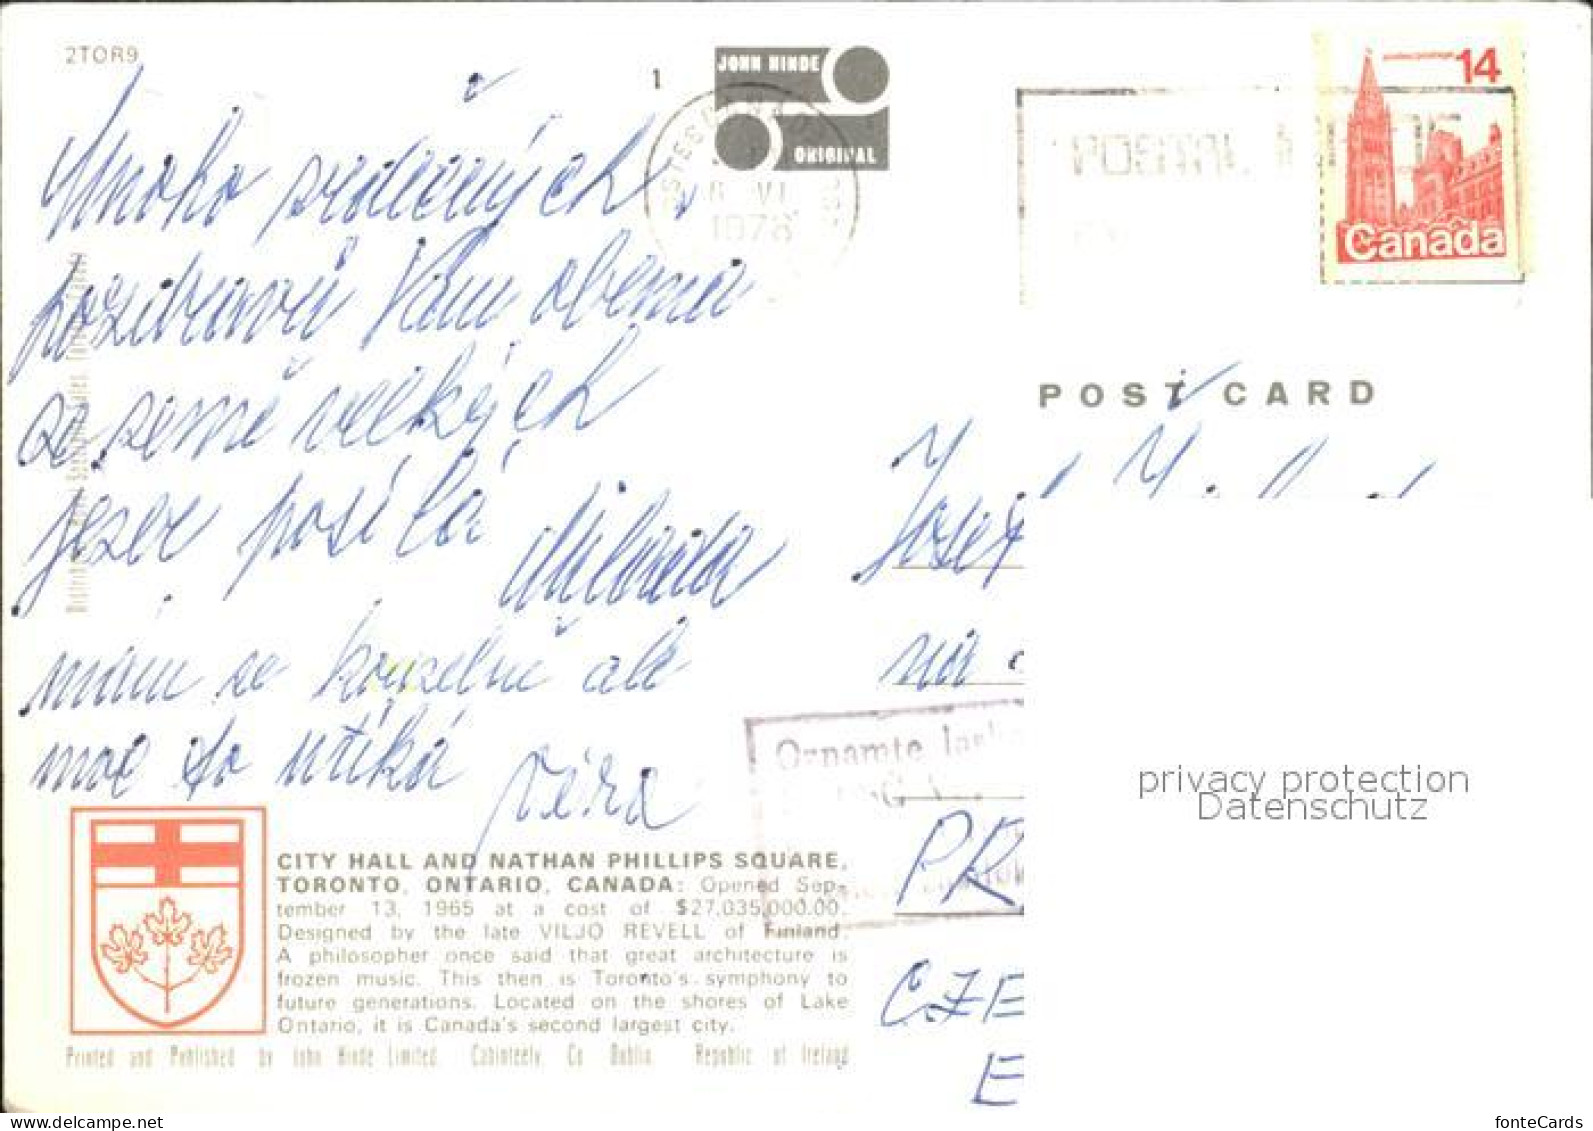 2TOR9
1
JOHN HINDE
ORIGINAL
14
Canada
POSTAL
1978
POST CARD
Mnoho srdečných
pozdravů Vám oběma
ze země velkých
jezer posílá Milada
mám se kouzelně ale
moc to utíká
Věra
Josef
na
Oznamte
PR
CZE
E
CITY HALL AND NATHAN PHILLIPS SQUARE,
TORONTO, ONTARIO, CANADA: Opened Sep-
tember 13, 1965 at a cost of $27,035,000.00.
Designed by the late VILJO REVELL of Finland.
A philosopher once said that great architecture is
frozen music. This then is Toronto's symphony to
future generations. Located on the shores of Lake
Ontario, it is Canada's second largest city.
Printed and Published by John Hinde Limited. Cabinteely Co Dublin Republic of Ireland
privacy protection
Datenschutz
fonteCards